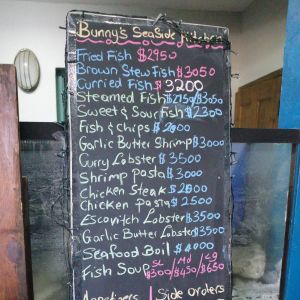 Bunny's SeaSide Kitchen
Fried Fish $2950
Brown Stew Fish $3050
Curried Fish $3200
Steamed Fish $2950/$3050
Sweet & Sour Fish $2300
Fish & chips $2800
Garlic Butter Shrimp $3000
Curry Lobster $3500
Shrimp pasta $3000
Chicken Steak $2800
Chicken pasta $2500
Escovitch Lobster $3500
Garlic Butter Lobster $3500
Seafood Boil $4000
Fish Soup SL $300 Md $450 Lg $650
Appetizers | Side orders